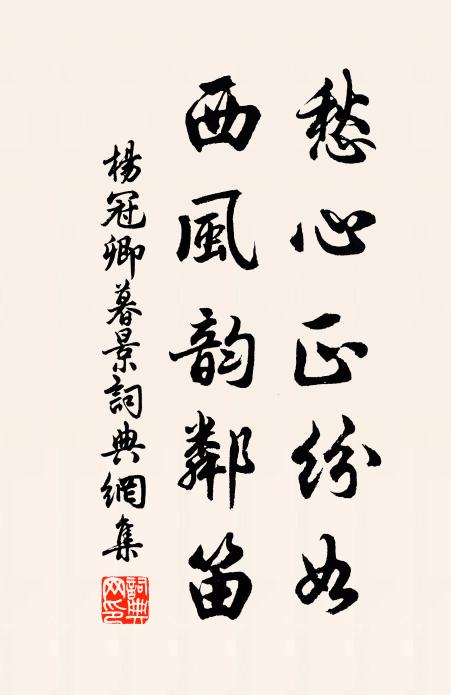 愁心正紛如
西風韵鄰笛
楊冠卿暮景詞典網集
詞典網印